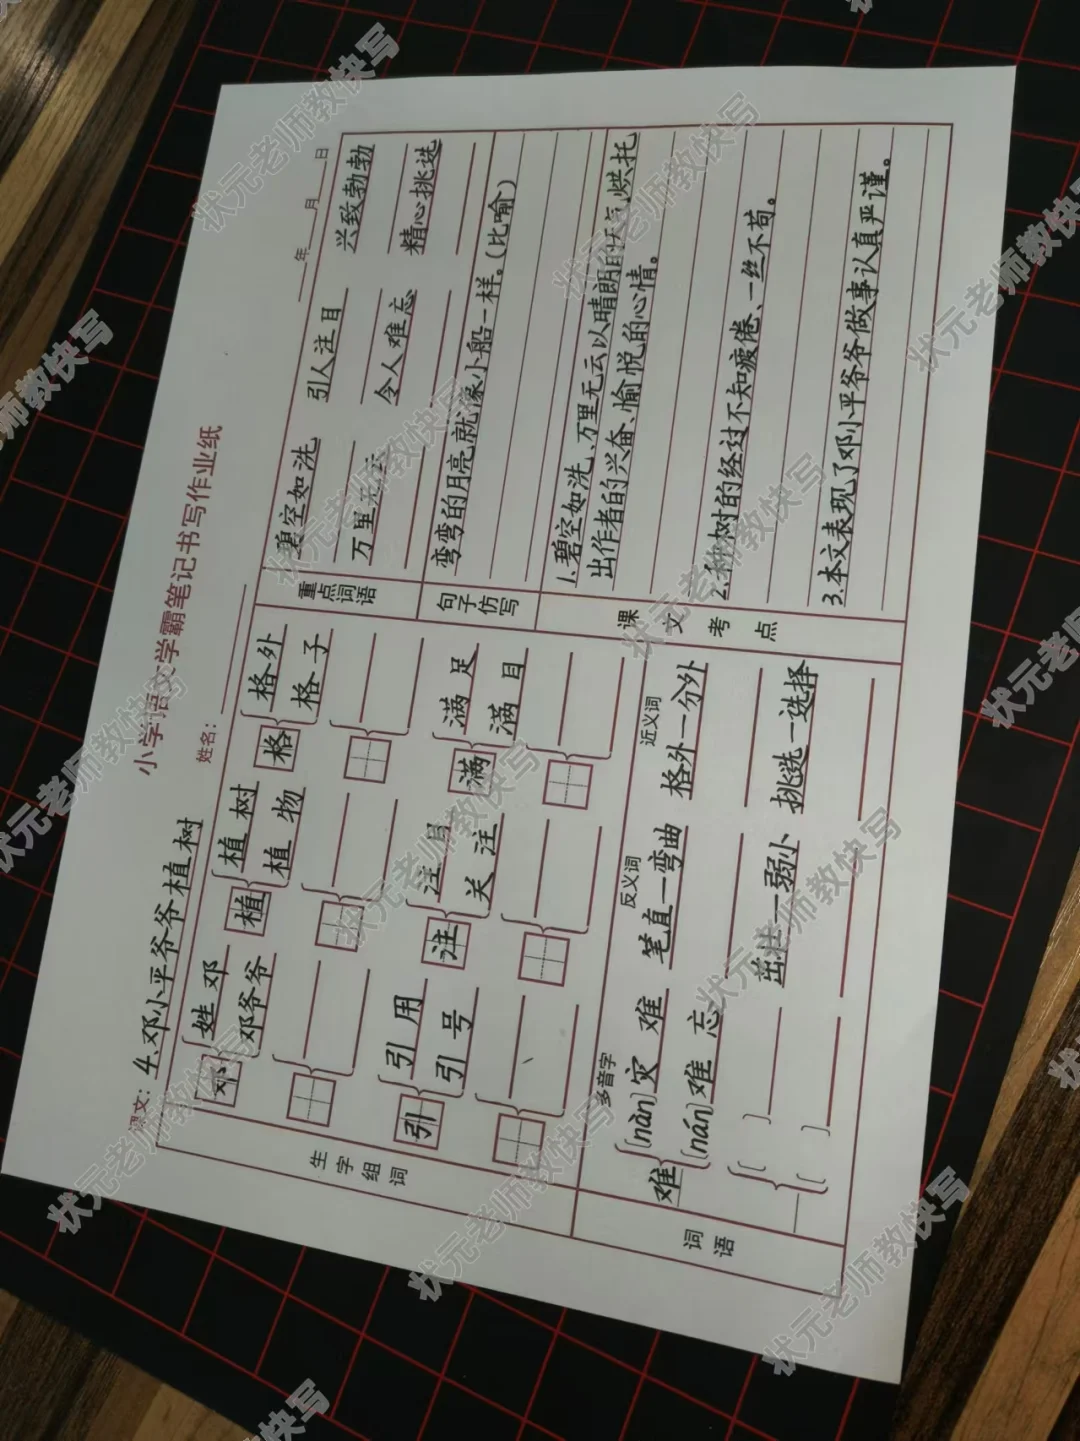 小学语文学霸笔记书写作业纸
课文：4.邓小平爷爷植树
姓名：
年 月 日
生字组词
邓 姓邓 邓爷爷
植 植树 植物
格 格外 格子
引 引用 引号
注 注目 关注
满 满足 满目
词语
多音字 反义词 近义词
难 (nàn)灾难 笔直—弯曲 格外—分外
(nán)难忘
茁壮—弱小 挑选—选择
重点词语
碧空如洗 引人注目 兴致勃勃
万里无云 令人难忘 精心挑选
句子仿写
弯弯的月亮，就像小船一样。(比喻)
课文考点
1.碧空如洗、万里无云以晴朗的天气烘托
出作者的兴奋、愉悦的心情。
2.种树的经过不知疲倦、一丝不苟。
3.本文表现了邓小平爷爷做事认真严谨。
状元老师教快写